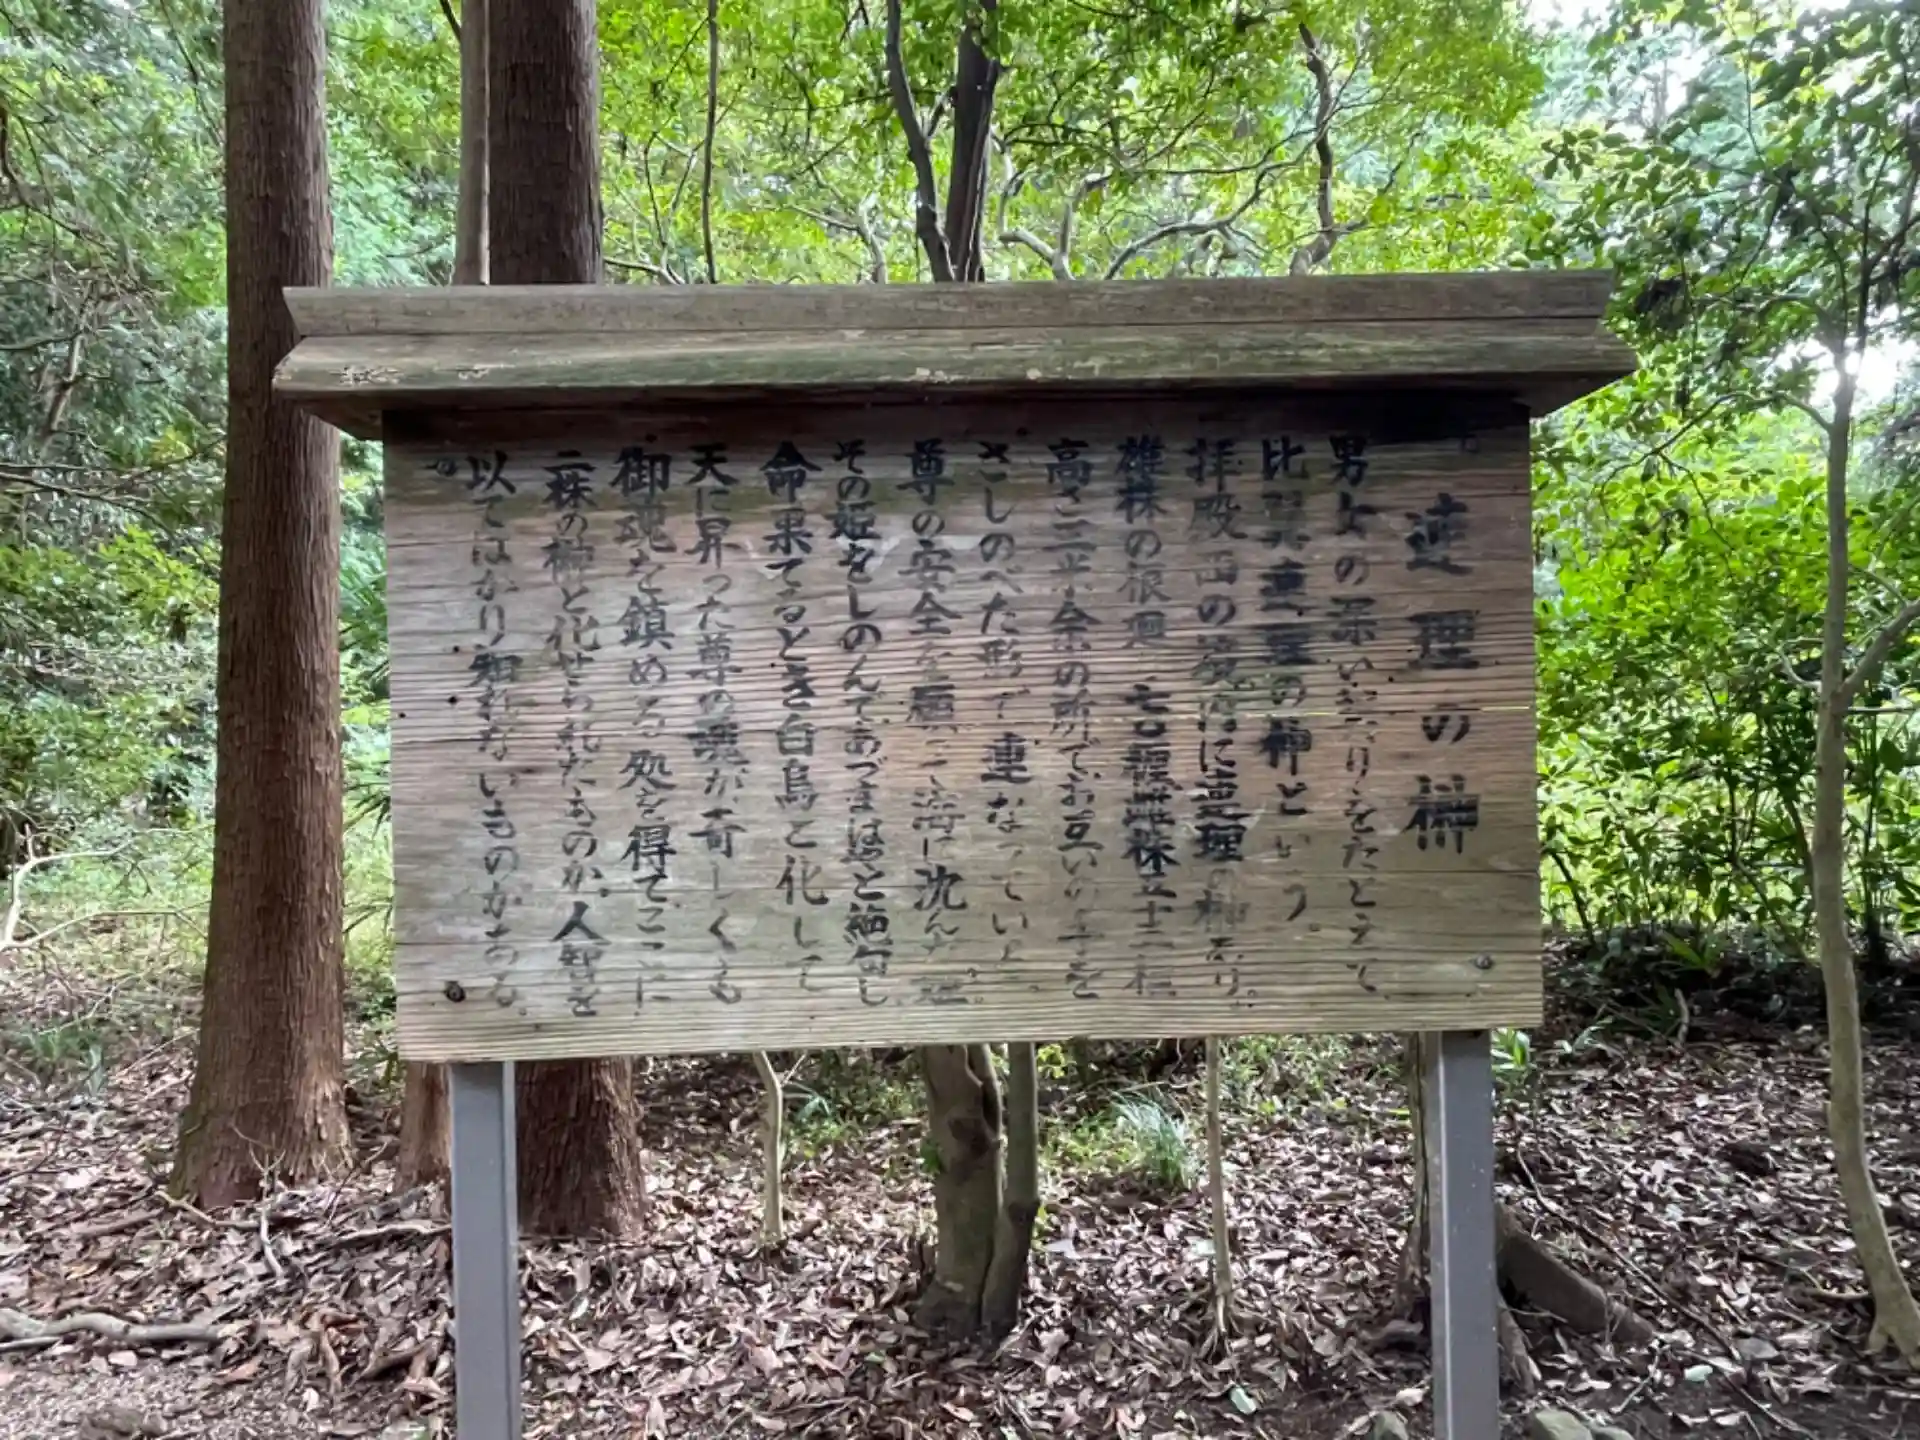 連理の榊
男女の深い契りをたとえて
比翼連理の神という。
拝殿西の後方に連理の榊あり。
雄株の根廻り 雌株
高さ三米余の所でお互いの手を
さしのべた形で連なっている。
尊の安全を願って海に沈んだ姫
その姫をしのんであづまはやと絶句し
命果てるとき白鳥と化して
天に昇った尊の魂が奇しくも
御魂を鎮める処を得てここに
二株の榊と化せられたものか。人智を
以てはかり知れないものがある。